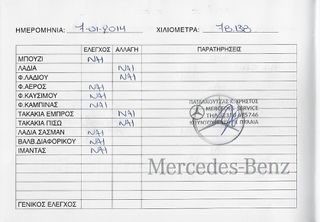 ΗΜΕΡΟΜΗΝΙΑ: 7-01-2014 ΧΙΛΙΟΜΕΤΡΑ: 78.138
ΕΛΕΓΧΟΣ ΑΛΛΑΓΗ ΠΑΡΑΤΗΡΗΣΕΙΣ
ΜΠΟΥΖΙ ΝΑΙ
ΛΑΔΙΑ ΝΑΙ
Φ.ΛΑΔΙΟΥ ΝΑΙ
Φ.ΑΕΡΟΣ ΝΑΙ
Φ.ΚΑΥΣΙΜΟΥ ΝΑΙ
Φ.ΚΑΜΠΙΝΑΣ ΝΑΙ
ΤΑΚΑΚΙΑ ΕΜΠΡΟΣ ΝΑΙ
ΤΑΚΑΚΙΑ ΠΙΣΩ ΝΑΙ
ΛΑΔΙΑ ΣΑΣΜΑΝ ΝΑΙ
ΒΑΛΒ.ΔΙΑΦΟΡΙΚΟΥ ΝΑΙ
ΙΜΑΝΤΑΣ ΝΑΙ
ΧΡΗΣΤΟΣ
MERCEDES SERVICE
Mercedes-Benz
ΓΕΝΙΚΟΣ ΕΛΕΓΧΟΣ